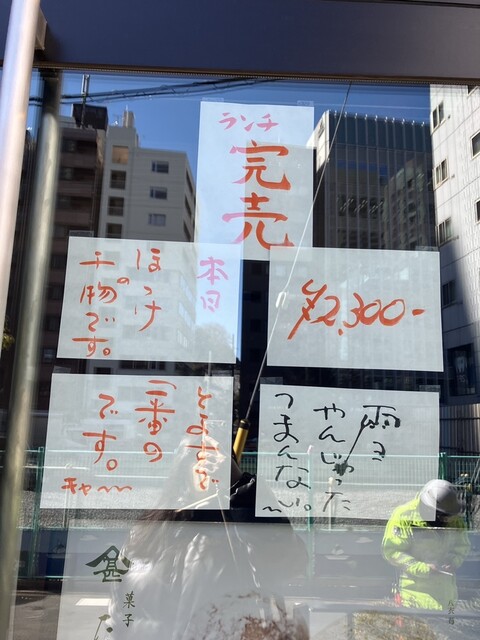 ランチ
完売
本日
ほっけ
の
干物です。
¥2,300-
一番の
です。
キャ〜〜
雨
やんじゃった
つまんない〜。
甚
菓子